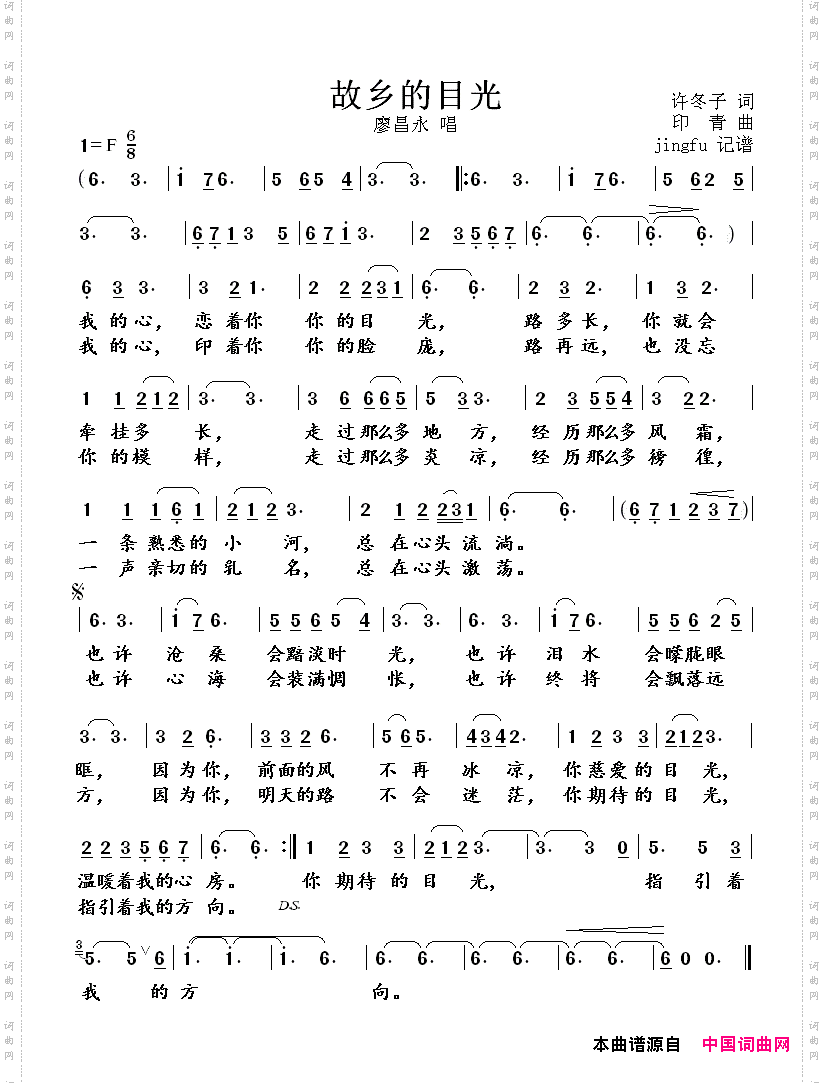 故乡的目光
廖昌永 唱
许冬子 词
印 青 曲
jingfu 记谱
1=F 6/8
(6· 3· | i 76· | 5 65 4 | 3· 3· ‖: 6· 3· | i 76· | 5 62 5 |
3· 3· | 6713 5 | 67i3· | 2 3567 | 6· 6· | 6· 6· ) |
6 3 3· | 3 2 1· | 2 2 231 | 6· 6· | 2 3 2· | 1 3 2· |
我的心, 恋着你 你的目 光, 路多长, 你就会
我的心, 印着你 你的脸 庞, 路再远, 也没忘
1 1 212 | 3· 3· | 3 6 665 | 5 33· | 2 3 554 | 3 22· |
牵挂多 长, 走过那么多地方, 经历那么多风霜,
你的模 样, 走过那么多炎凉, 经历那么多徬徨,
1 1 161 | 2123· | 2 1 2231 | 6· 6· | (671237) |
一条熟悉的小 河, 总在心头流淌。
一声亲切的乳 名, 总在心头激荡。
6· 3· | i76· | 55654 | 3· 3· | 6· 3· | i76· | 55625 |
也许 沧桑 会黯淡时 光, 也许 泪水 会曚胧眼
也许 心海 会装满惆 怅, 也许 终将 会飘落远
3· 3· | 3 2 6· | 3326· | 565· | 4342· | 1 2 3 3 | 2123· |
眶, 因为你, 前面的风 不再 冰凉, 你慈爱的目光,
方, 因为你, 明天的路 不会 迷茫, 你期待的目光,
223567 | 6· 6· :‖ 1 2 3 3 | 2123· | 3· 3 0 | 5· 5 3 |
温暖着我的心房。 你期待的目光, 指引着
指引着我的方向。 D.S.
3 5· 5 ∨ 6 | i· i· | i· 6 | 6· 6· | 6· 6· | 6· 6· | 6 0 0· ‖
我 的方 向。
本曲谱源自 中国词曲网